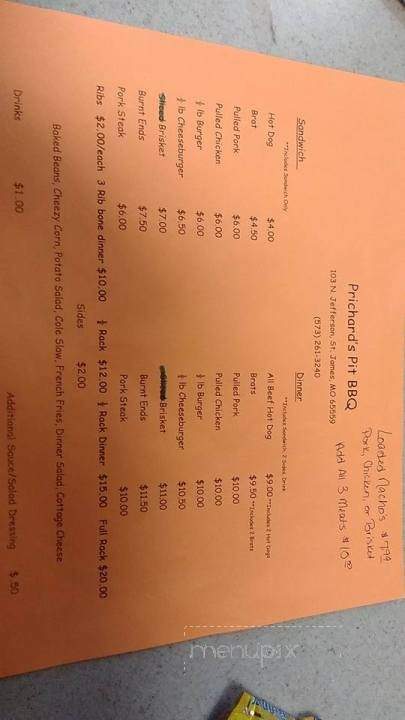 Loaded Nachos $7.99
Pork, Chicken, or Brisket
Add All 3 Meats $10.00
Prichard's Pit BBQ
103 N. Jefferson, St. James, MO 65559
(573) 261-3240
Sandwich Dinner
**Includes Sandwich Only **Includes Sandwich, 2 Sides, Drink
Hot Dog $4.00 All Beef Hot Dog $9.00 **Includes 2 Hot Dogs
Brat $4.50 Brats $9.50 **Includes 2 Brats
Pulled Pork $6.00 Pulled Pork $10.00
Pulled Chicken $6.00 Pulled Chicken $10.00
½ lb Burger $6.00 ½ lb Burger $10.00
½ lb Cheeseburger $6.50 ½ lb Cheeseburger $10.50
Brisket $7.00 Brisket $11.00
Burnt Ends $7.50 Burnt Ends $11.50
Pork Steak $6.00 Pork Steak $10.00
Ribs $2.00/each 3 Rib bone dinner $10.00 ½ Rack $12.00 ½ Rack Dinner $15.00 Full Rack $20.00
Sides $2.00
Baked Beans, Cheezy Corn, Potato Salad, Cole Slaw, French Fries, Dinner Salad, Cottage Cheese
Drinks $1.00 Additional Sauce/Salad Dressing $.50
menupix